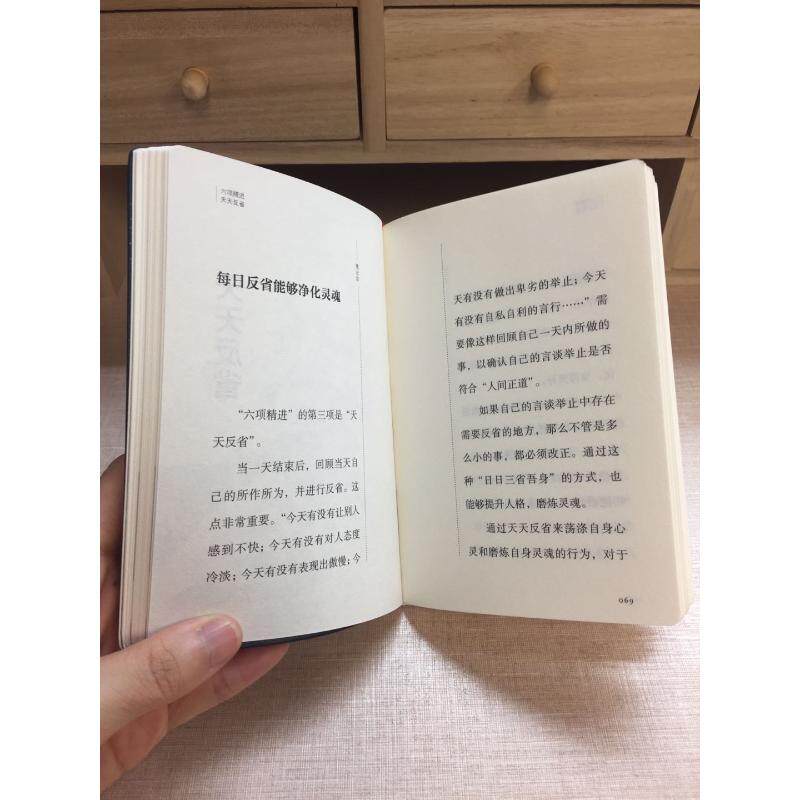 六项精进
天天反省
每日反省能够净化灵魂
“六项精进”的第三项是“天
天反省”。
当一天结束后，回顾当天自
己的所作所为，并进行反省。这
点非常重要。“今天有没有让别人
感到不快；今天有没有对人态度
冷淡；今天有没有表现出傲慢；今
天有没有做出卑劣的举止；今天
有没有自私自利的言行……”需
要像这样回顾自己一天内所做的
事，以确认自己的言谈举止是否
符合“人间正道”。
如果自己的言谈举止中存在
需要反省的地方，那么不管是多
么小的事，都必须改正。通过这
种“日日三省吾身”的方式，也
能够提升人格，磨炼灵魂。
通过天天反省来荡涤自身心
灵和磨炼自身灵魂的行为，对于
069